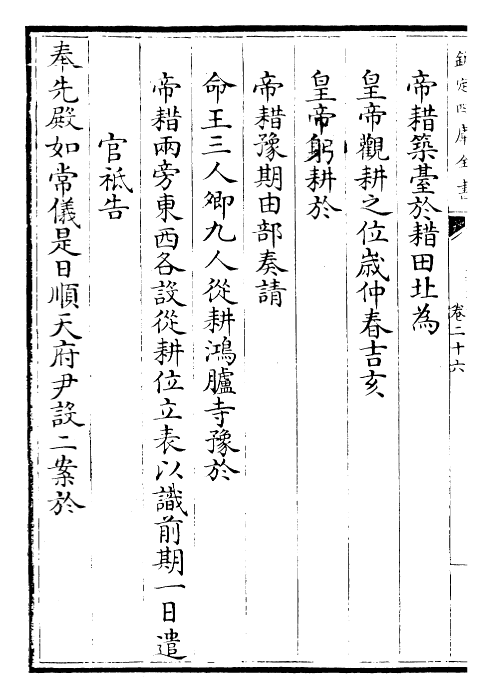 欽定四庫全書
卷二十六
帝耤築臺於耤田北為
皇帝觀耕之位歲仲春吉亥
皇帝躬耕於
帝耤豫期由部奏請
命王三人卿九人從耕鴻臚寺豫於
帝耤兩旁東西各設從耕位立表以識前期一日遣
官祗告
奉先殿如常儀是日順天府尹設二案於